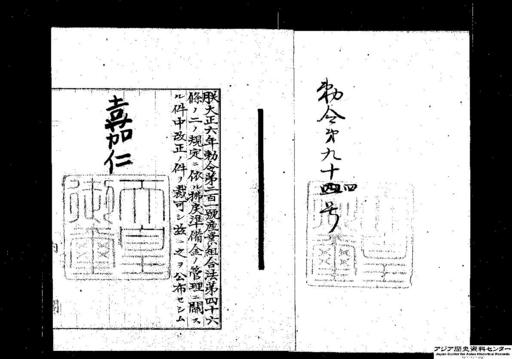 勅令第九十四号
朕大正六年勅令第二百號産業組合法第四十六
條ノ二ノ規定ニ依ル拂戻準備金ノ管理ニ關ス
ル件中改正ノ件ヲ裁可シ茲ニ之ヲ公布セシム
嘉仁
天皇御璽
アジア歴史資料センター
Japan Center for Asian Historical Records